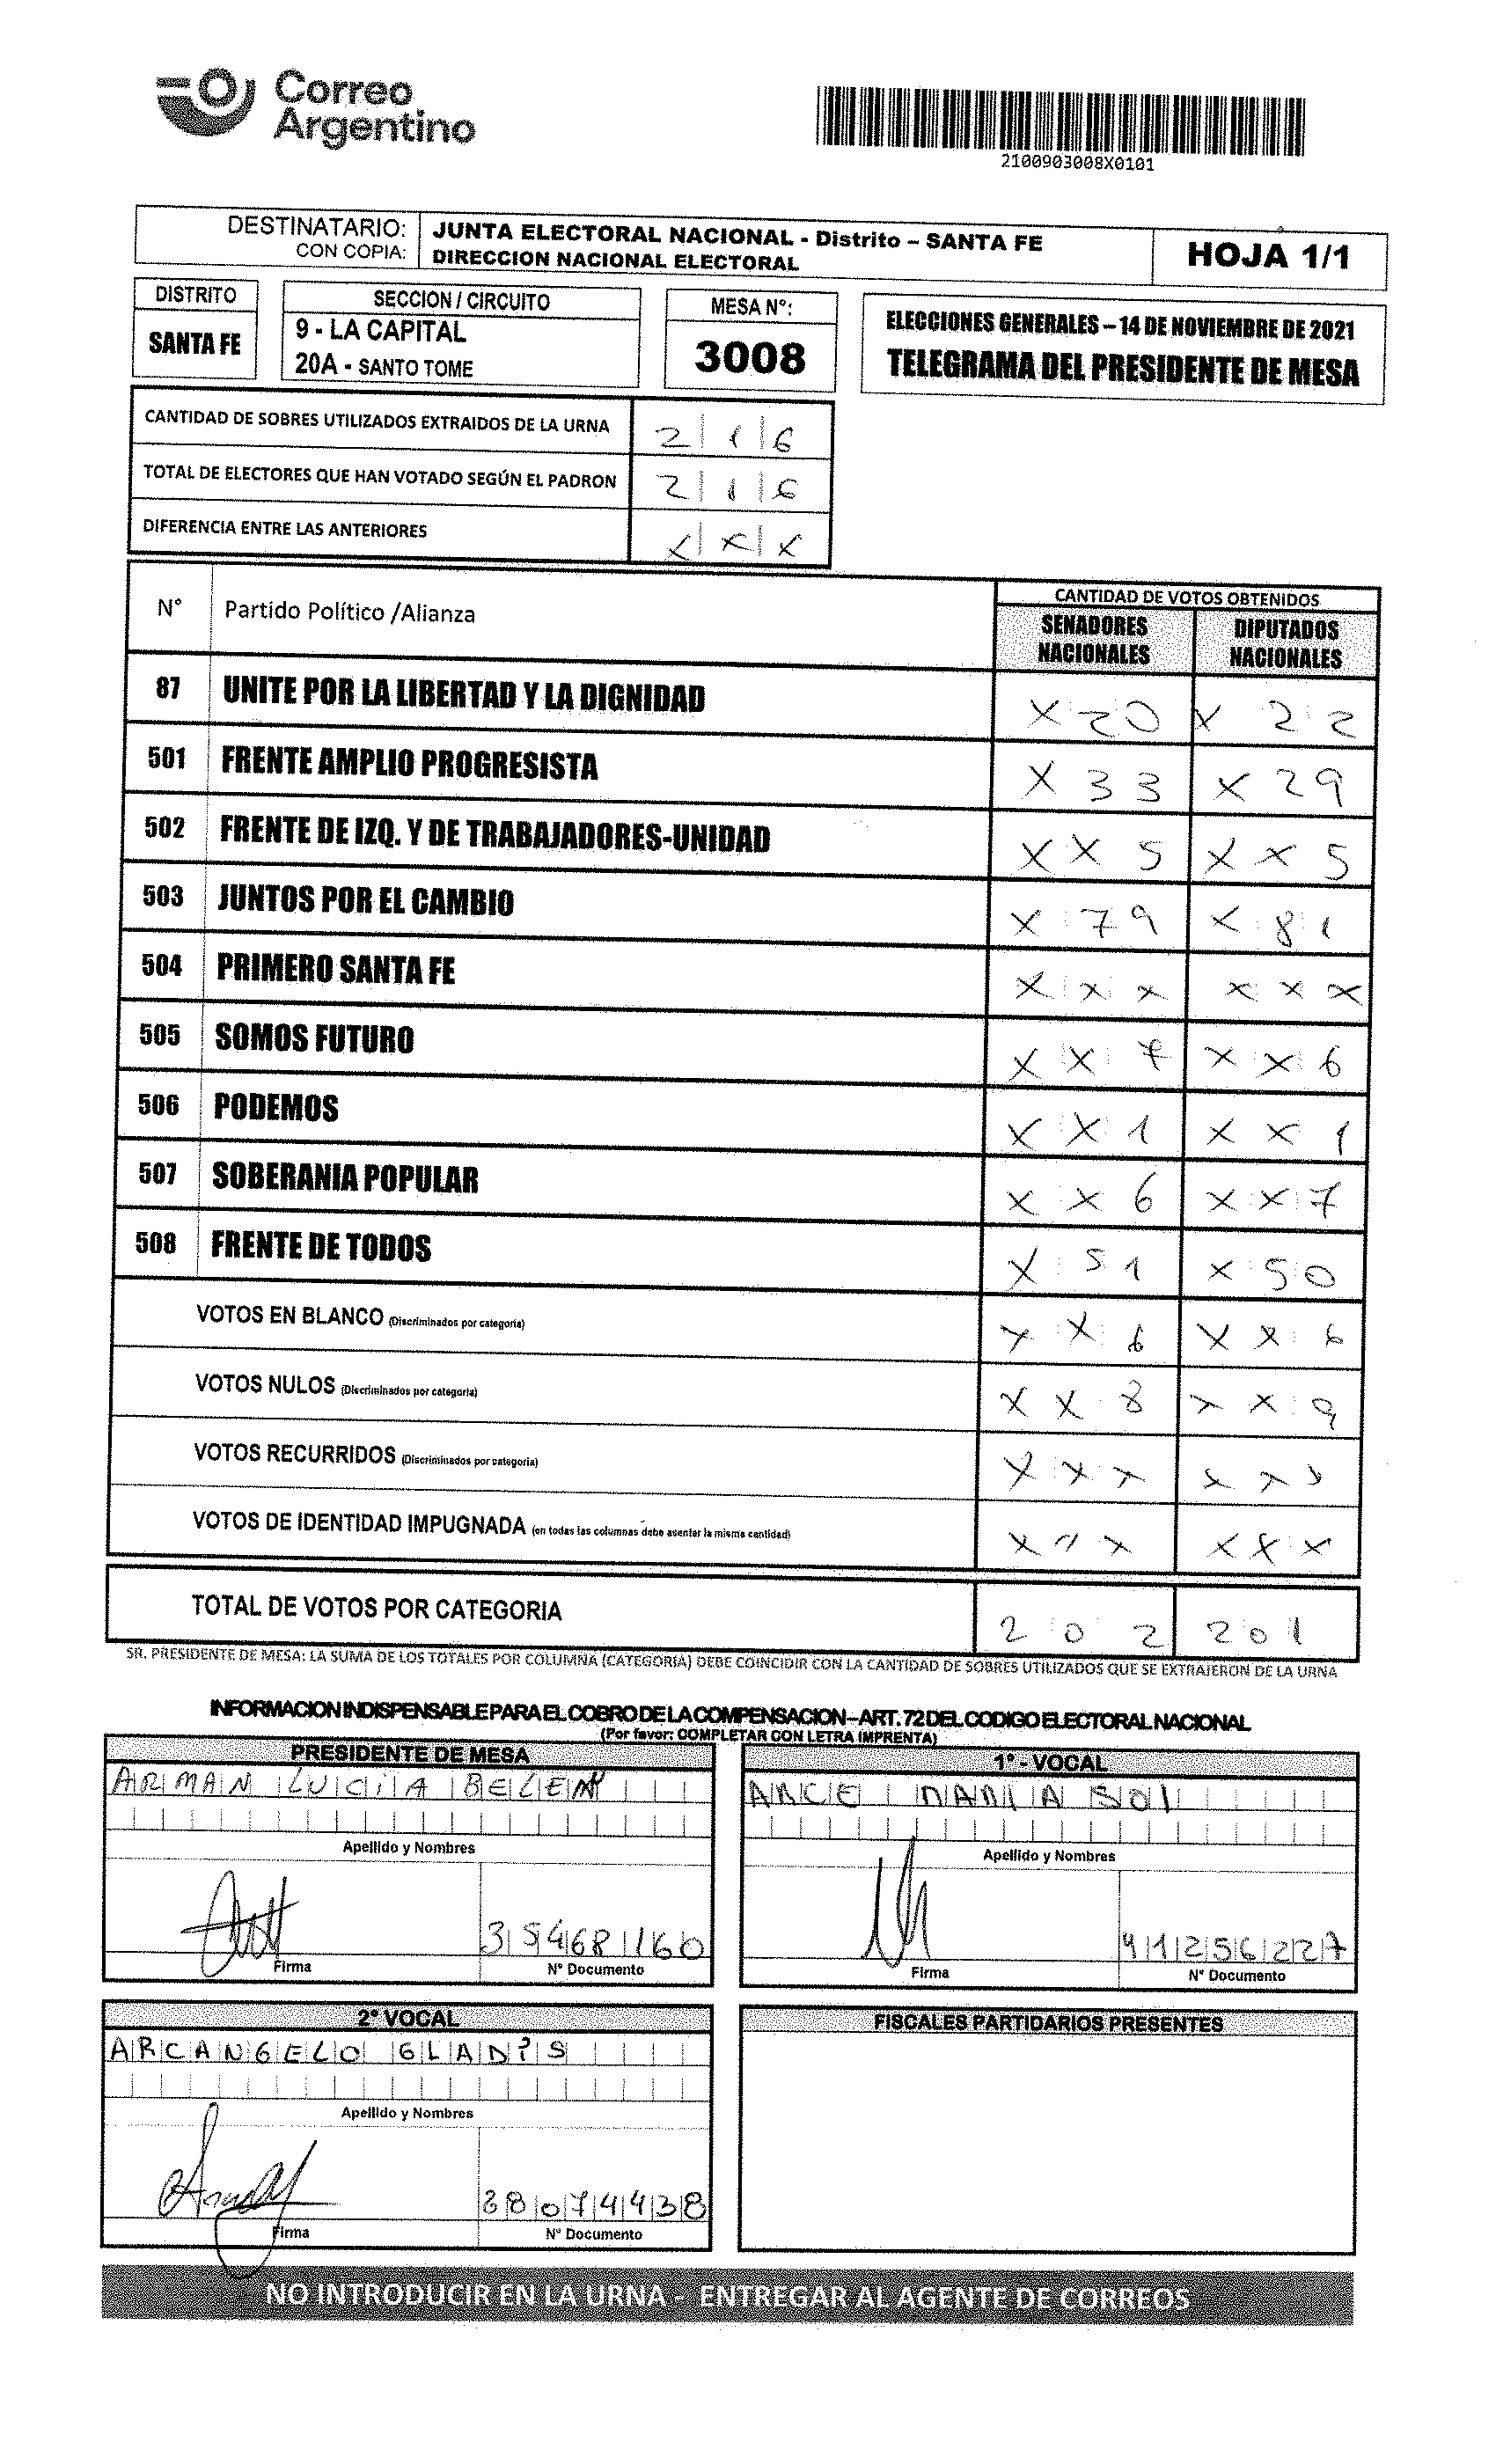 Correo
Argentino
2100903008X0101
DESTINATARIO: JUNTA ELECTORAL NACIONAL - Distrito – SANTA FE
CON COPIA: DIRECCION NACIONAL ELECTORAL
HOJA 1/1
DISTRITO
SANTA FE
SECCION / CIRCUITO
9 - LA CAPITAL
20A - SANTO TOME
MESA N°:
3008
ELECCIONES GENERALES – 14 DE NOVIEMBRE DE 2021
TELEGRAMA DEL PRESIDENTE DE MESA
CANTIDAD DE SOBRES UTILIZADOS EXTRAIDOS DE LA URNA 2 1 6
TOTAL DE ELECTORES QUE HAN VOTADO SEGÚN EL PADRON 2 1 6
DIFERENCIA ENTRE LAS ANTERIORES X X X
N° Partido Político /Alianza
CANTIDAD DE VOTOS OBTENIDOS
SENADORES NACIONALES
DIPUTADOS NACIONALES
87 UNITE POR LA LIBERTAD Y LA DIGNIDAD X 2 0 X 2 2
501 FRENTE AMPLIO PROGRESISTA X 3 3 X 2 9
502 FRENTE DE IZQ. Y DE TRABAJADORES-UNIDAD X X 5 X X 5
503 JUNTOS POR EL CAMBIO X 7 9 X 8 1
504 PRIMERO SANTA FE X X X X X X
505 SOMOS FUTURO X X 7 X X 6
506 PODEMOS X X 1 X X 1
507 SOBERANIA POPULAR X X 6 X X 7
508 FRENTE DE TODOS X 5 1 X 5 0
VOTOS EN BLANCO (Discriminados por categoria) X X 6 X X 6
VOTOS NULOS (Discriminados por categoria) X X 8 X X 9
VOTOS RECURRIDOS (Discriminados por categoria) X X X X X X
VOTOS DE IDENTIDAD IMPUGNADA (en todas las columnas debe asentar la misma cantidad) X X X X X X
TOTAL DE VOTOS POR CATEGORIA 2 0 2 2 0 1
SR. PRESIDENTE DE MESA: LA SUMA DE LOS TOTALES POR COLUMNA (CATEGORIA) DEBE COINCIDIR CON LA CANTIDAD DE SOBRES UTILIZADOS QUE SE EXTRAJERON DE LA URNA
INFORMACION INDISPENSABLE PARA EL COBRO DE LA COMPENSACION – ART. 72 DEL CODIGO ELECTORAL NACIONAL
(Por favor: COMPLETAR CON LETRA IMPRENTA)
PRESIDENTE DE MESA
ARMAN LUCIA BELEN
Apellido y Nombres
35468160
Firma N° Documento
1° - VOCAL
ARCE DANIA SOL
Apellido y Nombres
41256227
Firma N° Documento
2° VOCAL
ARCANGELO GLADIS
Apellido y Nombres
28074438
Firma N° Documento
FISCALES PARTIDARIOS PRESENTES
NO INTRODUCIR EN LA URNA - ENTREGAR AL AGENTE DE CORREOS